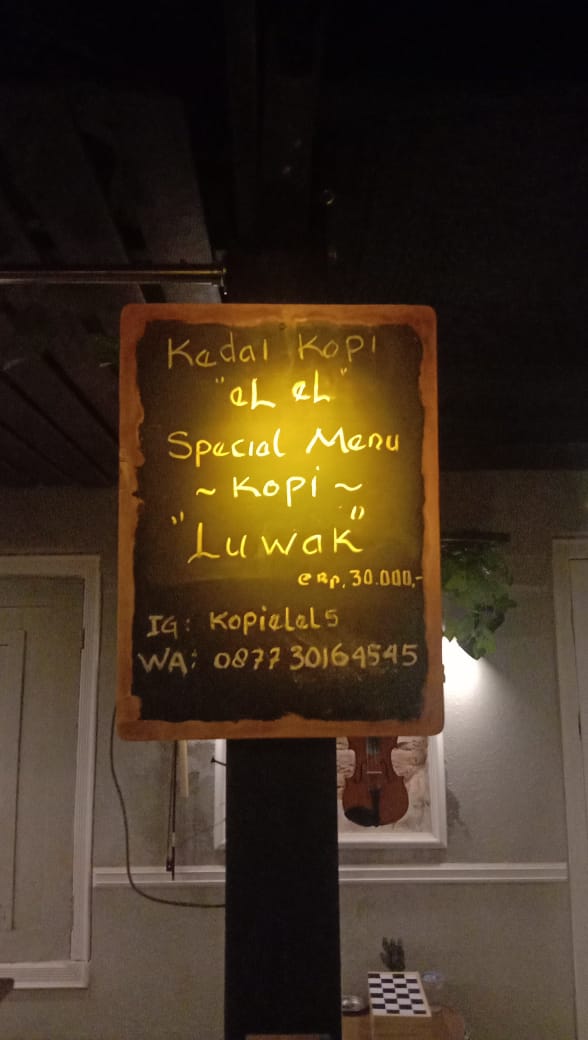 Kedai Kopi
"eL eL"
Special Menu
~ Kopi ~
"Luwak"
@Rp. 30.000,-
IG: Kopielel5
WA: 0877 30164545